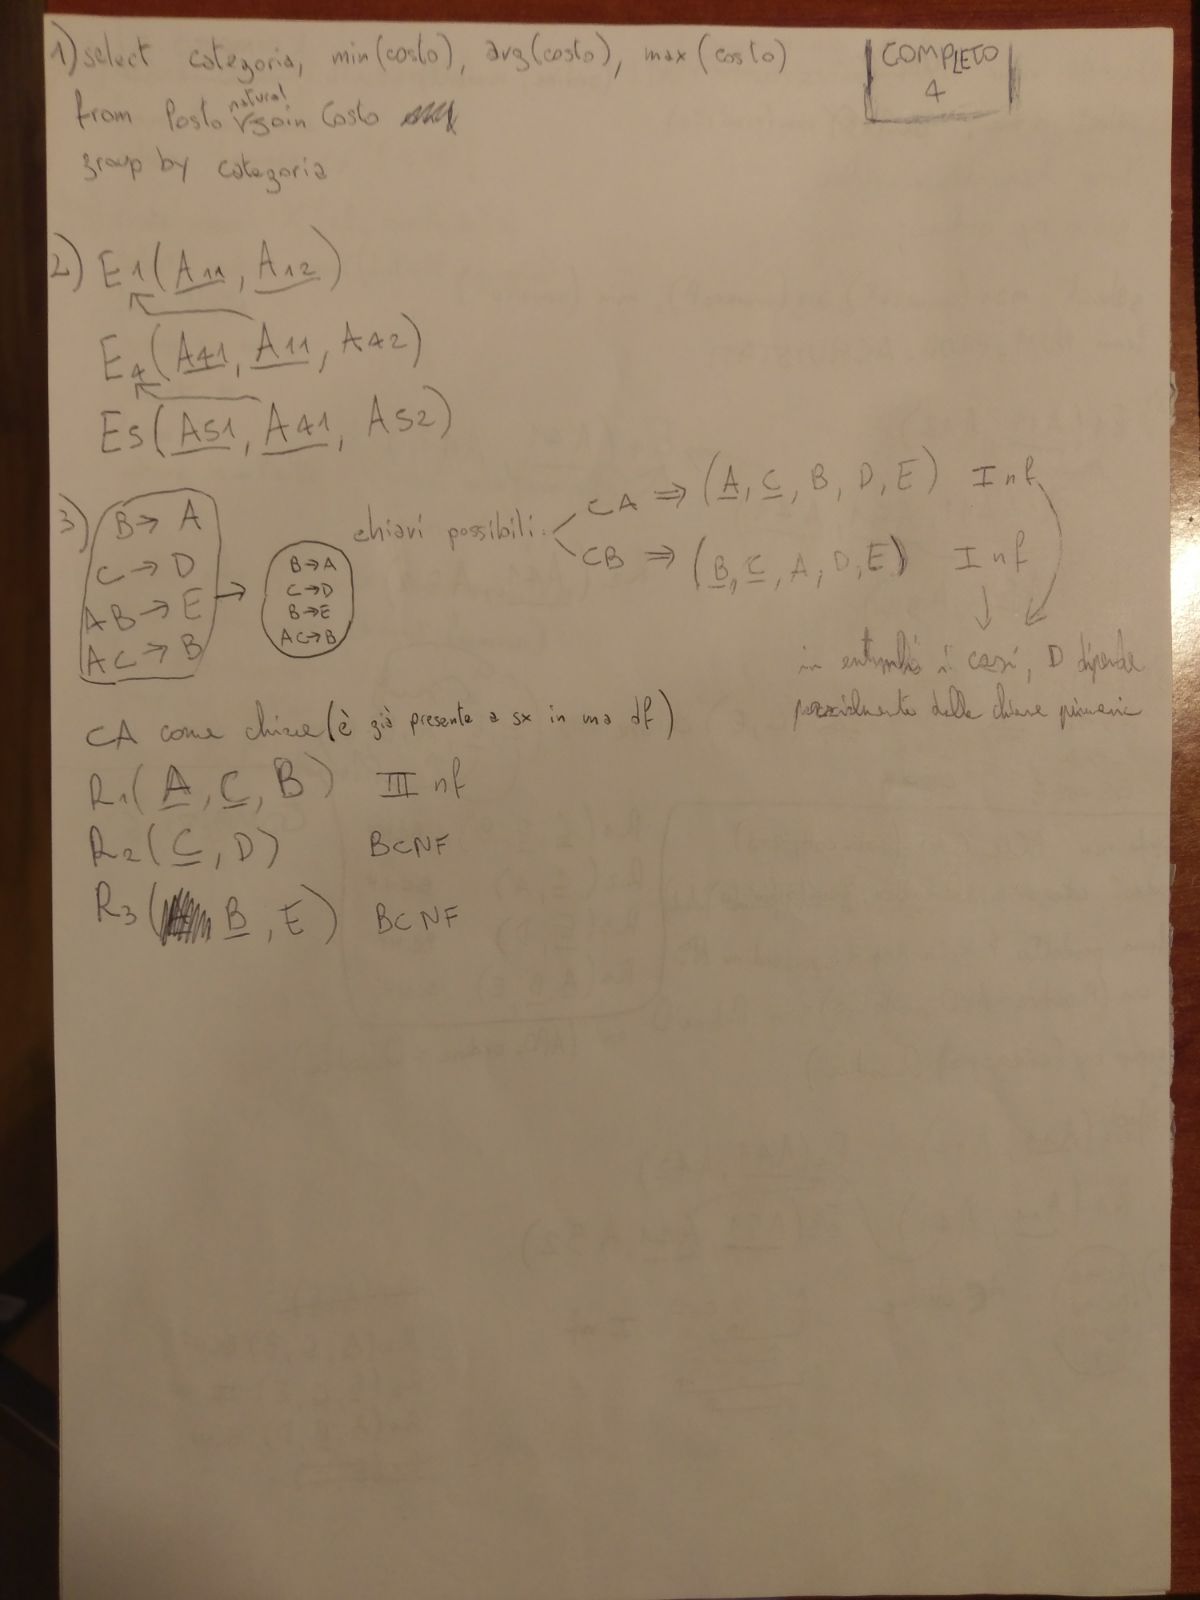 1) select categoria, min(costo), avg(costo), max(costo)
COMPLETO
4
from Posto natural join Costo
group by categoria
2) E1(A11, A12)
E4(A41, A11, A42)
E5(A51, A41, A52)
3) B → A
C → D
AB → E
AC → B
B→A
C→D
B→E
AC→B
chiavi possibili
CA ⇒ (A, C, B, D, E) I nf
CB ⇒ (B, C, A, D, E) I nf
in entrambi i casi, D dipende
parzialmente dalla chiave primaria
CA come chiave (è già presente a sx in una df)
R1(A, C, B) III nf
R2(C, D) BCNF
R3(B, E) BCNF